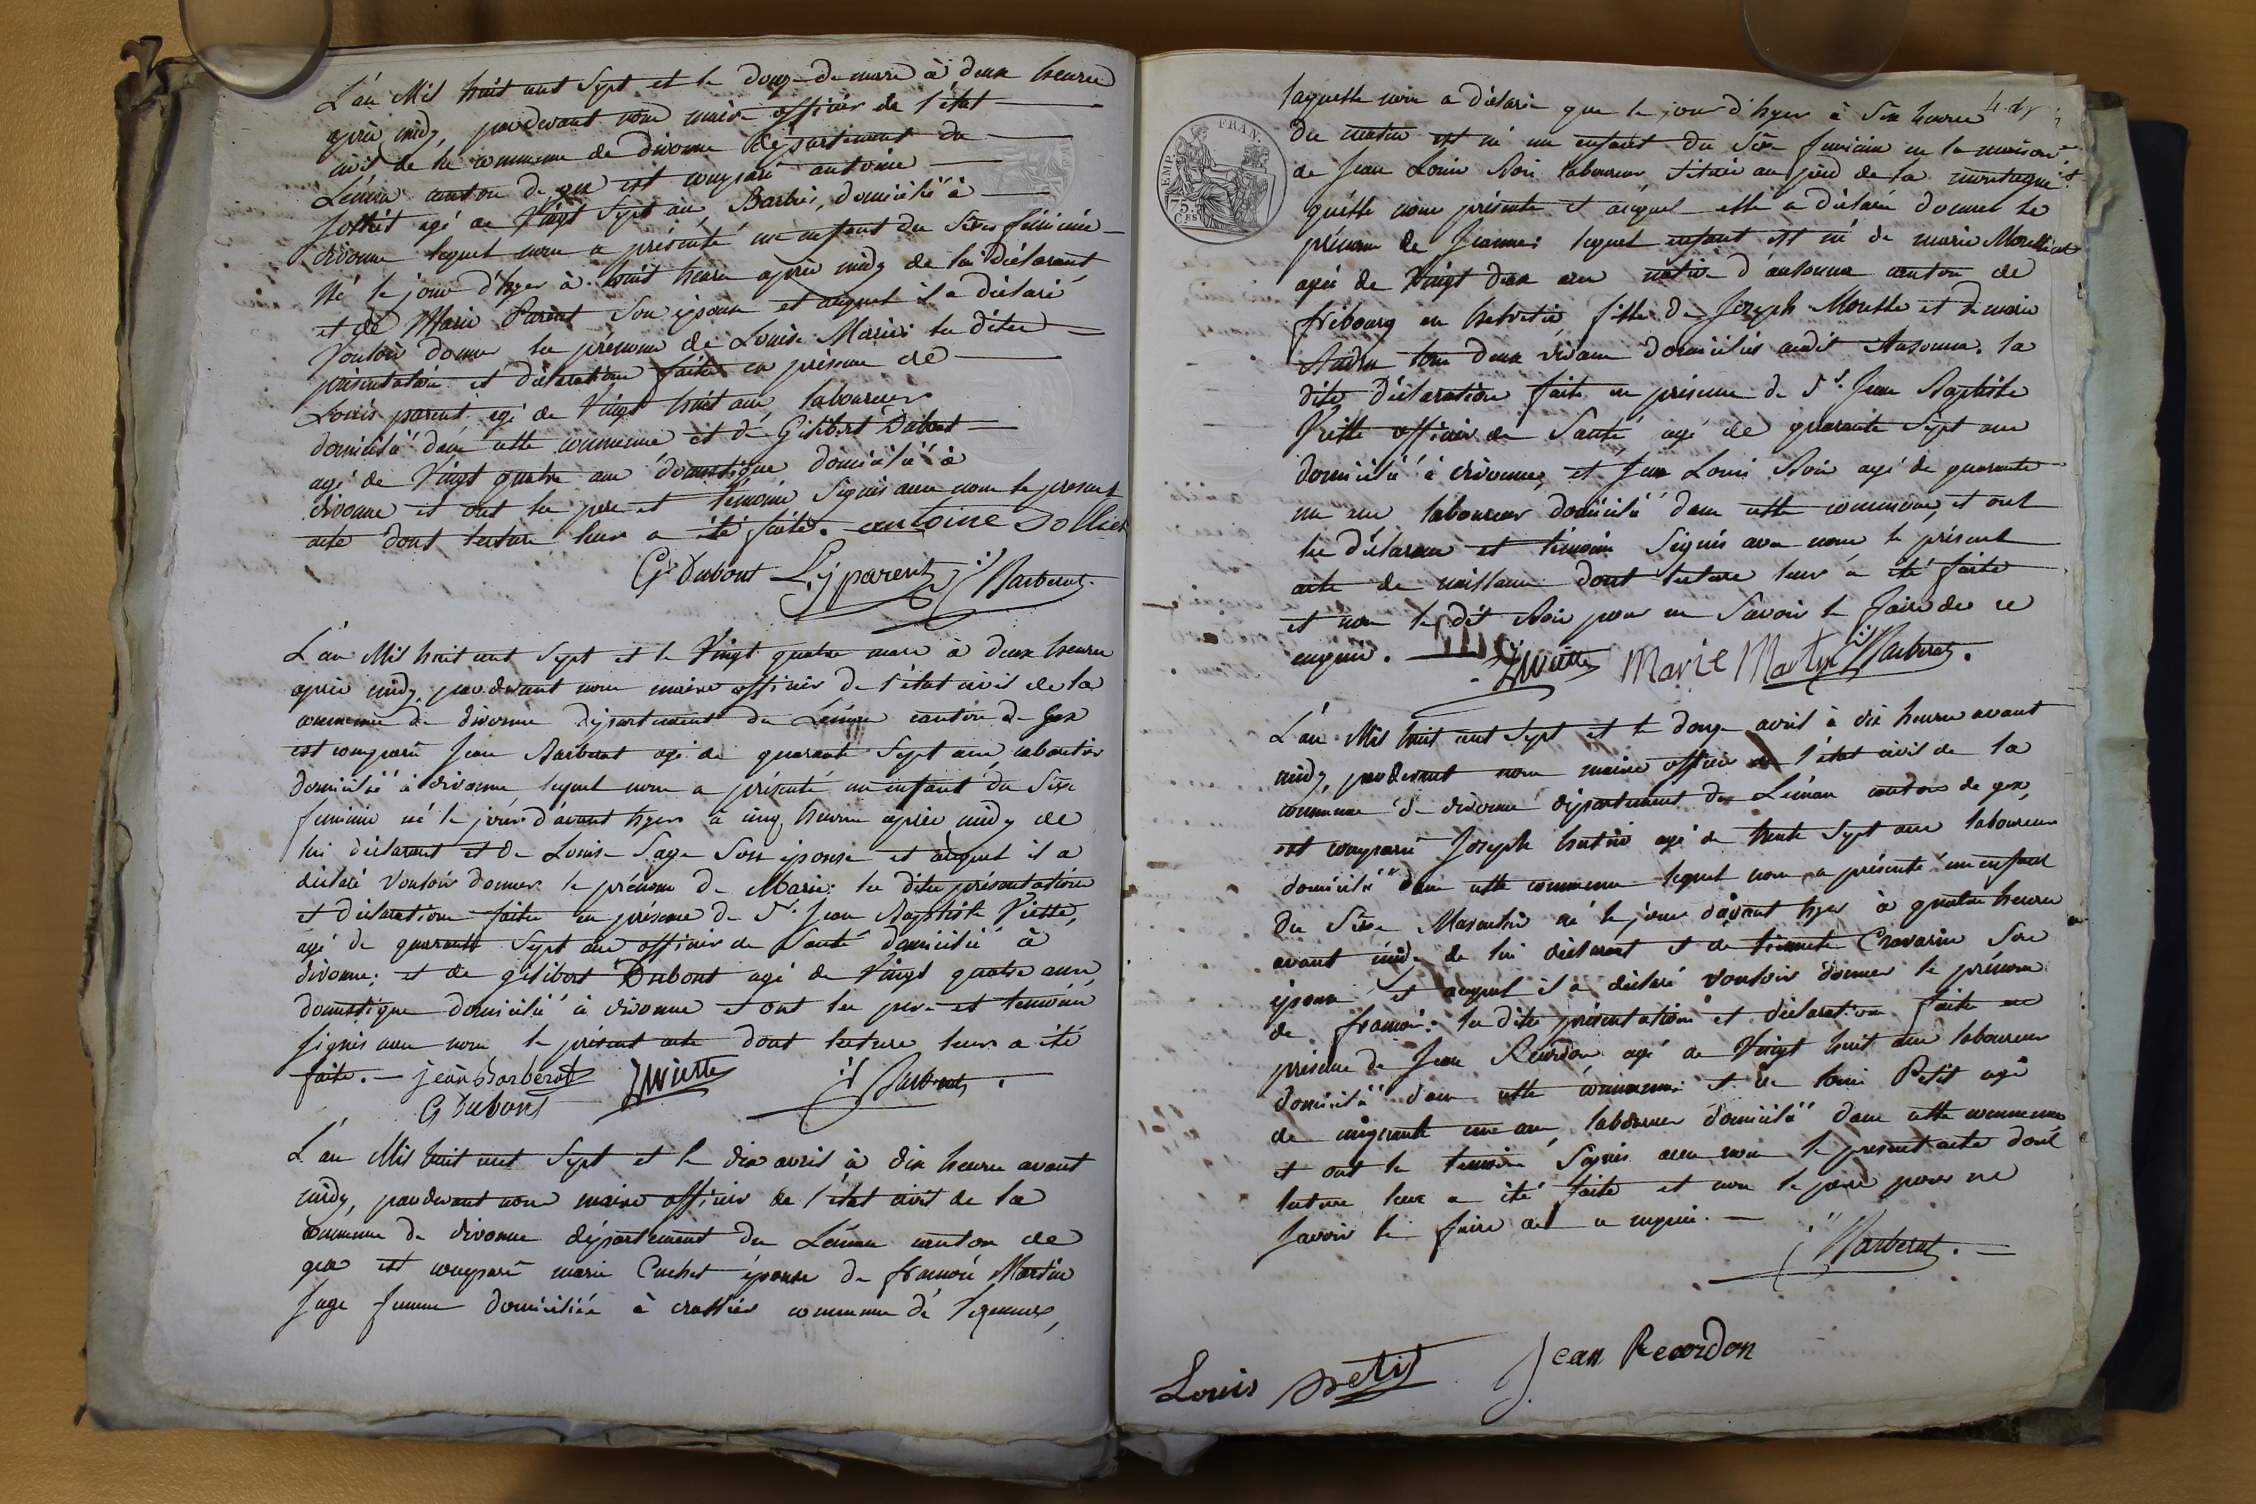 L'an Mil huit cent Sept et le douze de mars à deux heures
après midy, pardevant nous maire officier de l'état
civil de la commune de divonne département du
Léman canton de gex est comparû antoine
Sollier agé de Vingt Sept ans Barbier, domicilié à
divonne lequel nous a présenté un enfant du Sexe féminin
Né le jour d'hyer à huit heures après midy de lui Déclarant
et de Marie Parent Son épouse et auquel il a déclaré
Vouloir donner les prénoms de Louise Marie: les dites
présentation et déclaration faites en présence de
Louis parent agé de Vingt huit ans laboureur
domicilié dans cette commune et de Gilibert Dubout
agé de Vingt quatre ans domestique domicilié à
divonne et ont les pere et témoins Signés avec nous le présent
acte dont lecture leur a été faite. antoine Sollier
G Dubout L j parent Barberat
L'an Mil huit cent Sept et le Vingt quatre mars à deux heures
après midy pardevant nous maire officier de l'état civil de la
commune de divonne département du Léman canton de Gex
est comparû Jean Barberat agé de quarante Sept ans, cabaretier
domicilié à divonne lequel nous a présenté un enfant du Sexe
féminin né le jour d'avant hyer à cinq heures après midy de
lui déclarant et de Louise Sage Son épouse et auquel il a
déclaré Vouloir donner le prénom de Marie: les dites présentation
et déclaration faites en présence de Sr. Jean Baptiste Viette,
agé de quarante Sept ans officier de Santé domicilié à
divonne; et de gilibert Dubout agé de Vingt quatre ans,
domestique domicilié à divonne et ont les pere et temoins
Signés avec nous le présent acte dont lecture leur a été
faite. — jean Barberat JBViette Barberat
G Dubout
L'an Mil huit cent Sept et le dix avril à dix heures avant
midy, pardevant nous maire officier de l'état civil de la
commune de divonne département du Léman canton de
gex est comparû marie Cachet épouse de francois Martin
Sage femme domiciliée à crassier commune de
laquelle nous a déclaré que le jour d'hyer à Six heures
du matin est né un enfant du Sexe féminin en la maison
de Jean Louis Roi laboureur, située au pied de la montagne
qu'elle nous présente et auquel elle a déclaré donner le
prénom de Jeanne: lequel enfant est né de marie
agée de Vingt deux ans native d' canton de
fribourg en helvetie fille de Joseph et de marie
tous deux vivans domiciliés audit la
dite déclaration faite en présence de Sr. Jean Baptiste
Viette officier de Santé agé de quarante Sept ans
domicilié à divonne, et Jean Louis Roi agé de quarante
un ans laboureur domicilié dans cette commune, et ont
les déclarans et témoins Signés avec nous le présent
acte de naissance dont lecture leur a été faite
et non le dit Roi pour ne Savoir le faire de ce
enquis. JBViette Marie Martin Barberat.
L'an Mil huit cent Sept et le douze avril à dix heures avant
midy, pardevant nous maire officier de l'état civil de la
commune de divonne département du Léman canton de gex,
est comparû Joseph agé de trente Sept ans laboureur
domicilié dans cette commune lequel nous a présenté un enfant
du Sexe Masculin né le jour d'avant hyer à quatre heures
avant midi de lui déclarant et de Cravarin Son
épouse et auquel il a déclaré vouloir donner le prénom
de francois: les dites présentation et déclaration faites en
présence de Jean Recordon agé de Vingt huit ans laboureur
domicilié dans cette commune; et de Louis Petit agé
de cinquante un ans laboureur domicilié dans cette commune
et ont les temoins Signés avec nous le présent acte dont
lecture leur a été faite et non le pere pour ne
Savoir le faire de ce enquis. —
Barberat.
Louis petit Jean Recordon